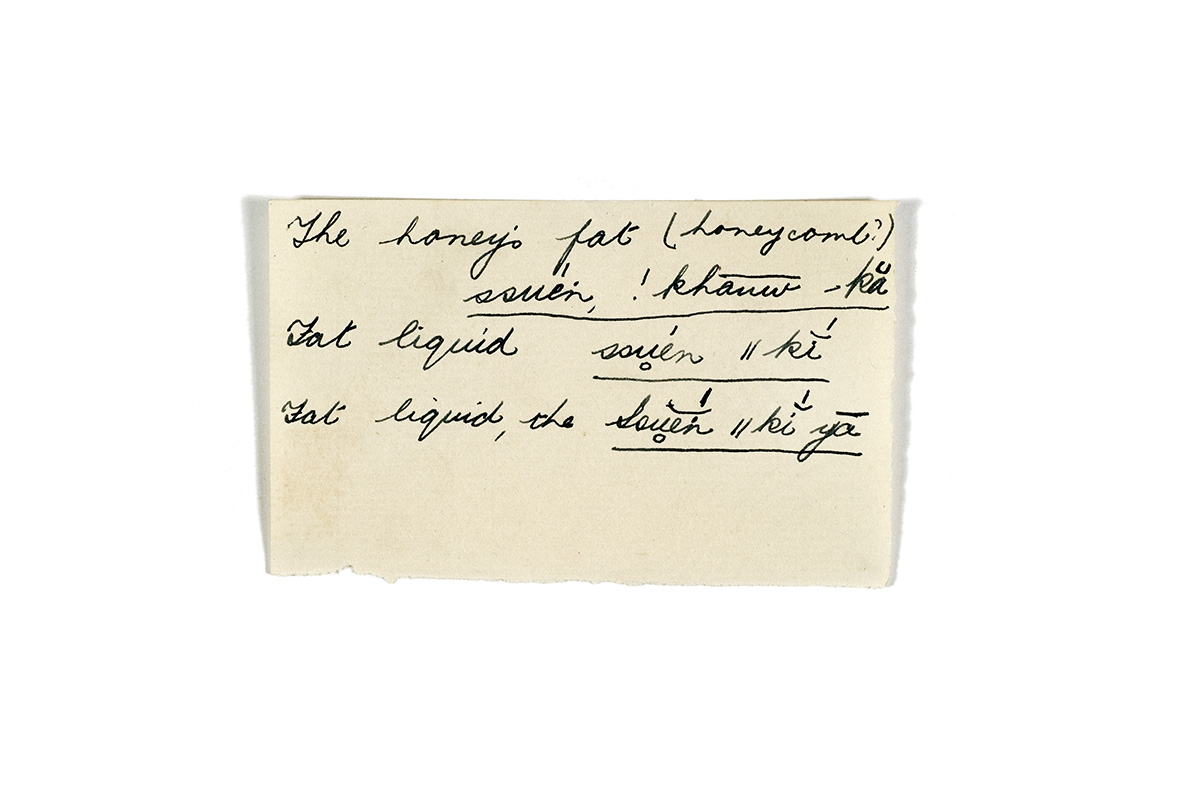 The honey's fat (honeycomb?)
ssuén, ! khauw̅ -kă
Fat liquid ssu̥én ǁkĭ́
Fat liquid, the Ssu̥ĕ́n ǁkĭ́ yā